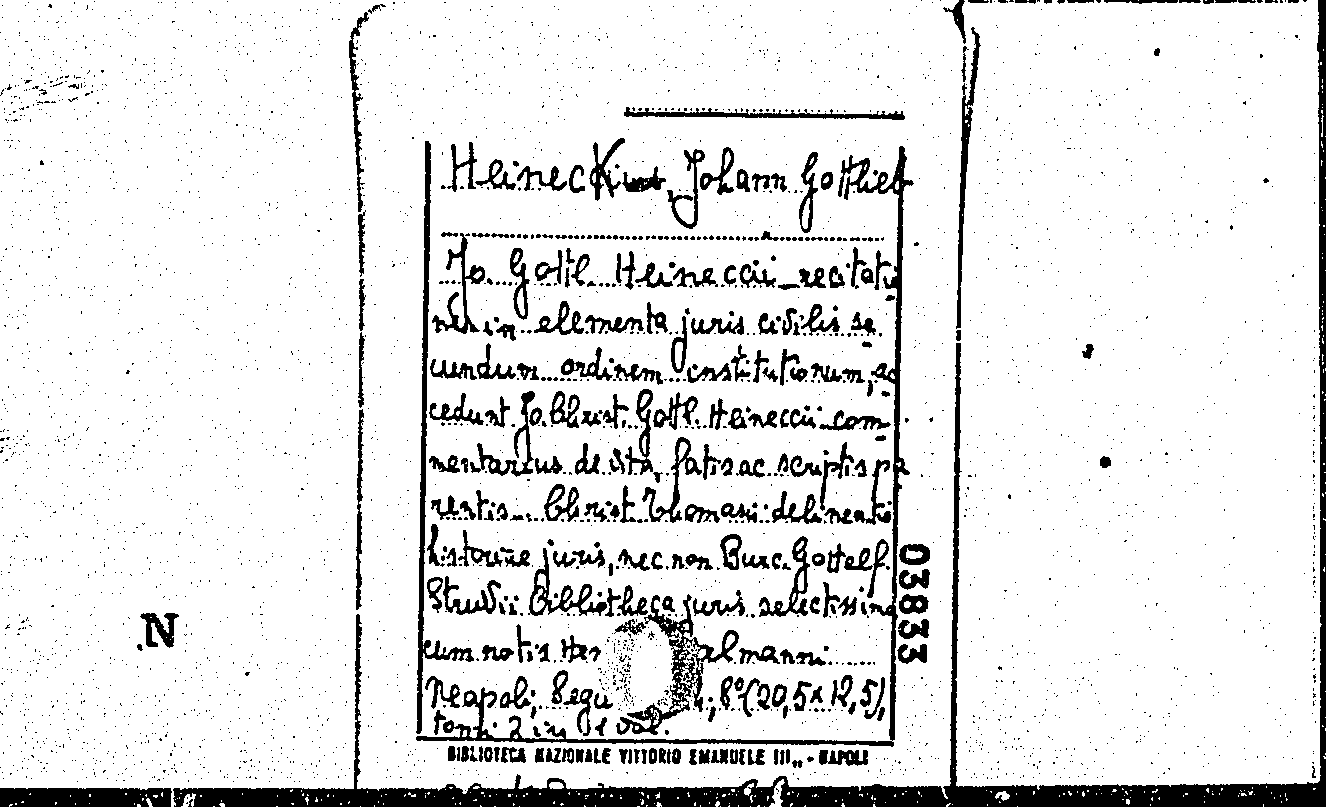 Heineckius, Johann Gottlieb
Jo. Gottl. Heineccii recitatio
nes in elementa juris civilis se
cundum ordinem institutionum, ac
cedunt Jo. Christ. Gottl. Heineccii com
mentarius de vita, fatis ac scriptis pa
rentis. Christ Thomasii delineatio
historiae juris, nec non Burc. Gottelf.
Struvii Bibliotheca juris selectissima
cum notis Her almanni
Neapoli; 8º (20,5x12,5),
tomi 2 in 1 vol.
BIBLIOTECA NAZIONALE VITTORIO EMANUELE III,, - NAPOLI
03833
N